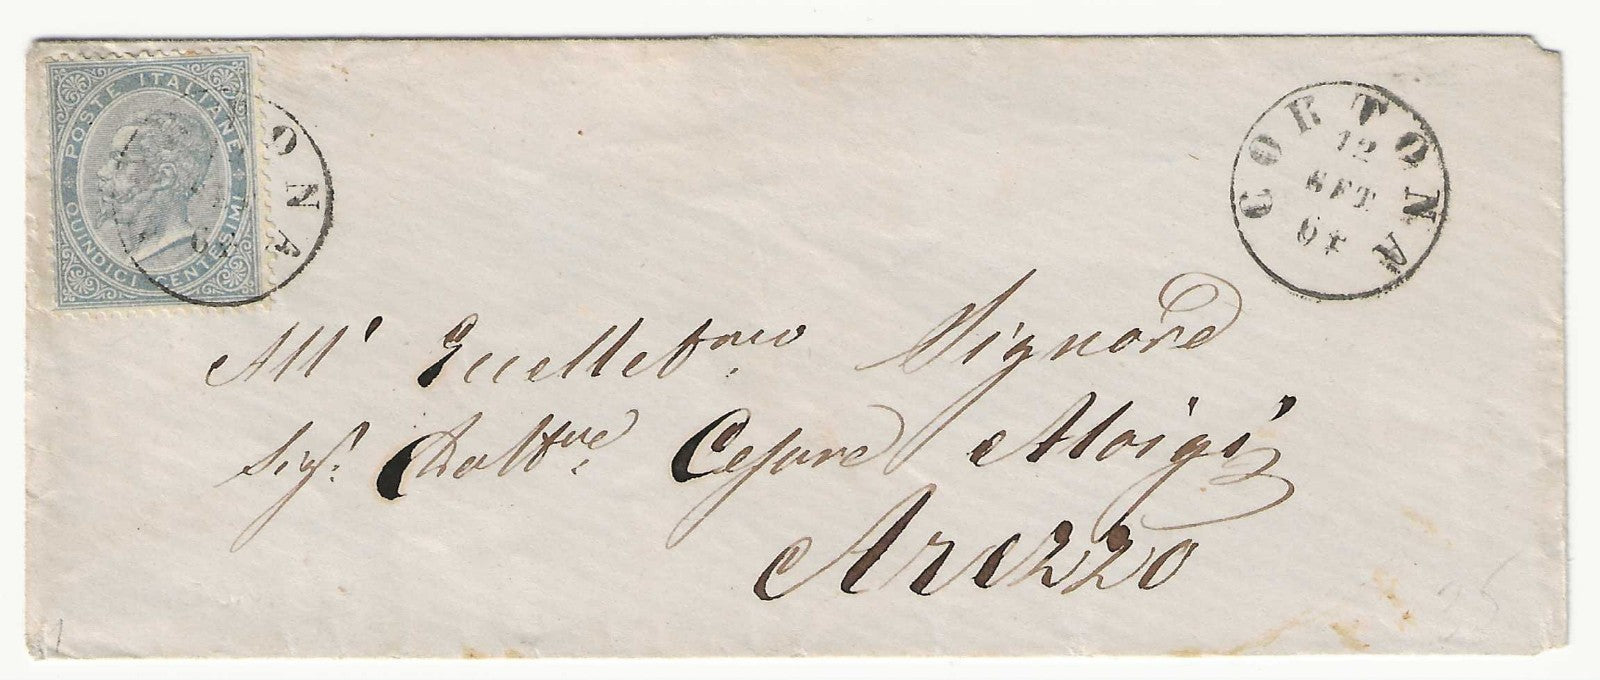 POSTE ITALIANE
QUINDICI CENTESIMI
ONA
CORTONA
12
SET
64
All' Eccelletmo Signore
Sig: Dottre Cesare Aloigi
Arezzo